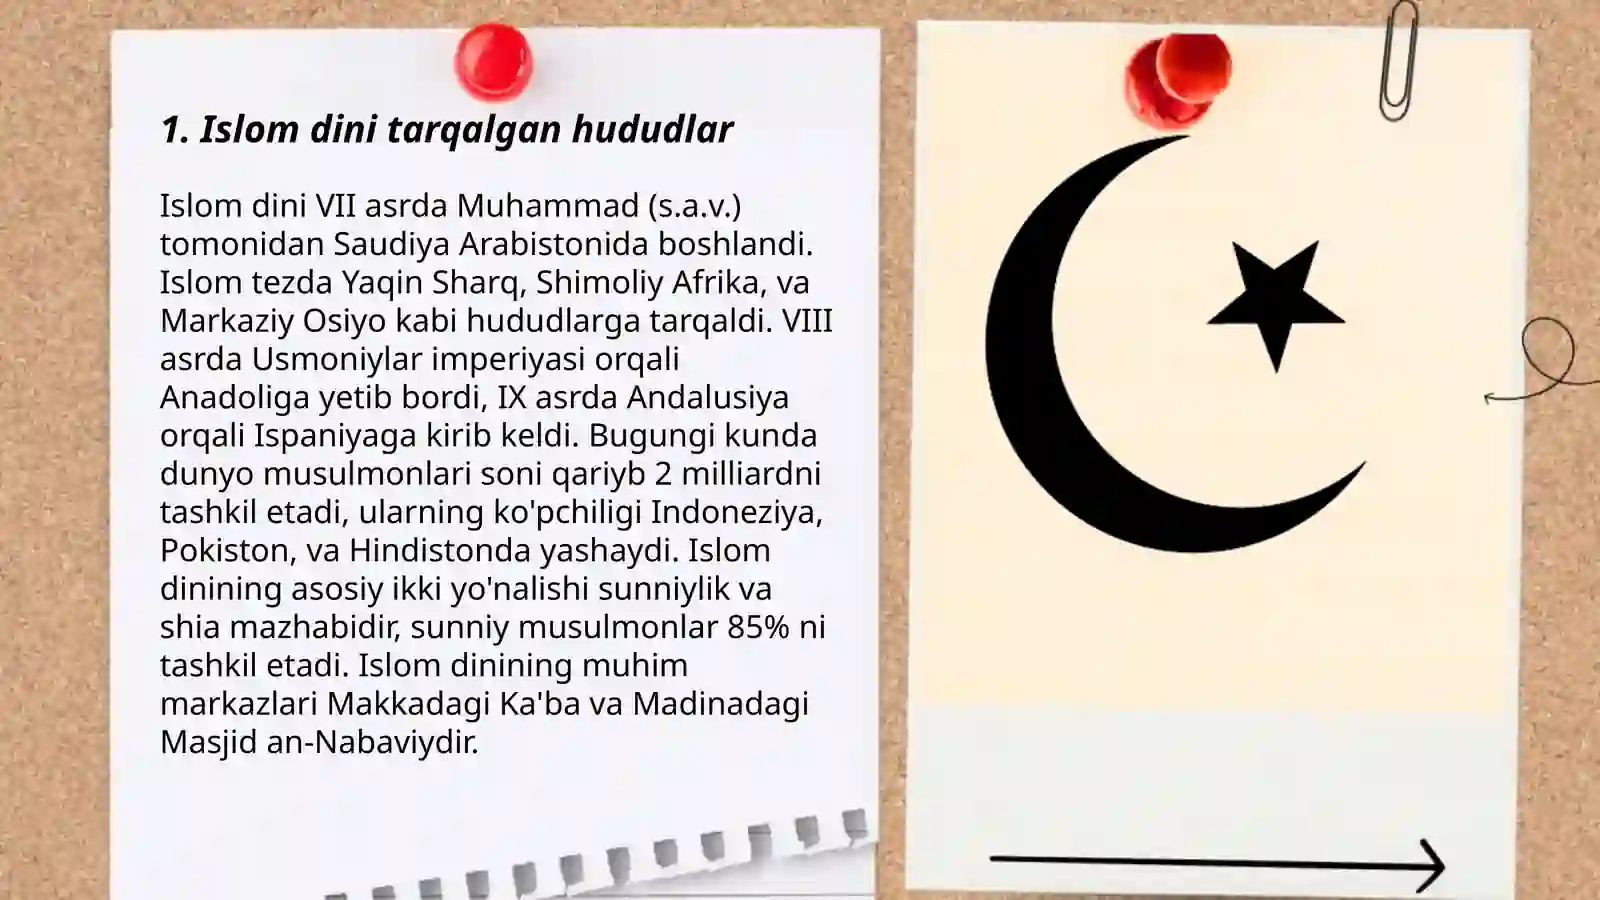 1. Islom dini tarqalgan hududlar
Islom dini VII asrda Muhammad (s.a.v.)
tomonidan Saudiya Arabistonida boshlandi.
Islom tezda Yaqin Sharq, Shimoliy Afrika, va
Markaziy Osiyo kabi hududlarga tarqaldi. VIII
asrda Usmoniylar imperiyasi orqali
Anadoliga yetib bordi, IX asrda Andalusiya
orqali Ispaniyaga kirib keldi. Bugungi kunda
dunyo musulmonlari soni qariyb 2 milliardni
tashkil etadi, ularning ko'pchiligi Indoneziya,
Pokiston, va Hindistonda yashaydi. Islom
dinining asosiy ikki yo'nalishi sunniylik va
shia mazhabidir, sunniy musulmonlar 85% ni
tashkil etadi. Islom dinining muhim
markazlari Makkadagi Ka'ba va Madinadagi
Masjid an-Nabaviydir.